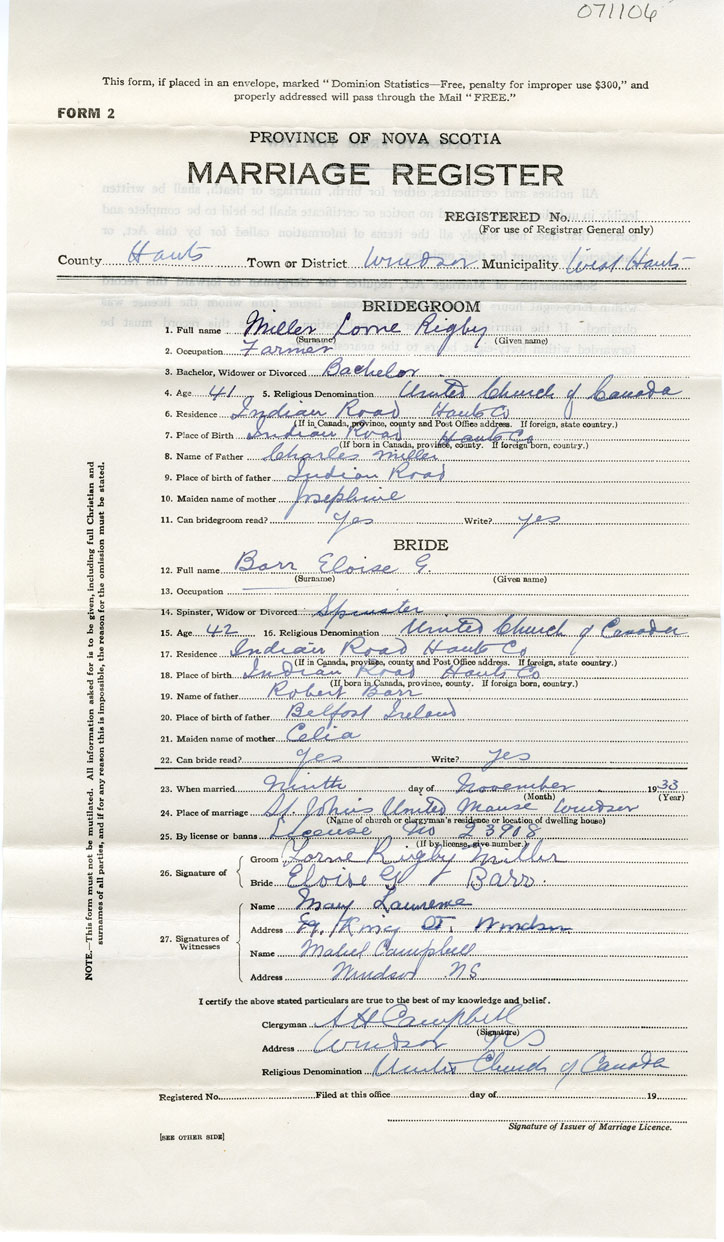 071106
This form, if placed in an envelope, marked "Dominion Statistics—Free, penalty for improper use $300," and
properly addressed will pass through the Mail "FREE."
FORM 2
PROVINCE OF NOVA SCOTIA
MARRIAGE REGISTER
REGISTERED No.
(For use of Registrar General only)
County Hants Town or District Windsor Municipality West Hants
BRIDEGROOM
1. Full name Miller Lorne Rigby
(Surname) (Given name)
2. Occupation Farmer
3. Bachelor, Widower or Divorced Bachelor
4. Age 41 5. Religious Denomination United Church of Canada
6. Residence Indian Road Hants Co
(If in Canada, province, county and Post Office address. If foreign, state country.)
7. Place of Birth Indian Road Hants Co
(If born in Canada, province, county. If foreign born, country.)
8. Name of Father Charles Miller
9. Place of birth of father Indian Road
10. Maiden name of mother Josephine
11. Can bridegroom read? yes Write? yes
BRIDE
12. Full name Barr Eloise G.
(Surname) (Given name)
13. Occupation
14. Spinster, Widow or Divorced Spinster
15. Age 42 16. Religious Denomination United Church of Canada
17. Residence Indian Road Hants Co
(If in Canada, province, county and Post Office address. If foreign, state country.)
18. Place of birth Indian Road Hants Co
(If born in Canada, province, county. If foreign born, country.)
19. Name of father Robert Barr
20. Place of birth of father Belfast Ireland
21. Maiden name of mother Celia
22. Can bride read? yes Write? yes
23. When married Ninth day of November 1933
(Month) (Year)
24. Place of marriage St. John's United Manse Windsor
(Name of church or clergyman's residence or location of dwelling house)
25. By license or banns License No 23918
(If by license, give number.)
26. Signature of
Groom Lorne Rigby Miller
Bride Eloise G Barr.
27. Signatures of Witnesses
Name Mary Lawrence
Address King St. Windsor
Name Mabel Campbell
Address Windsor NS
I certify the above stated particulars are true to the best of my knowledge and belief.
Clergyman A H Campbell
(Signature)
Address Windsor NS
Religious Denomination United Church of Canada
Registered No. Filed at this office day of 19
Signature of Issuer of Marriage Licence.
[SEE OTHER SIDE]
NOTE.—This form must not be mutilated. All information asked for is to be given, including full Christian and
surnames of all parties, and if for any reason this is impossible, the reason for the omission must be stated.